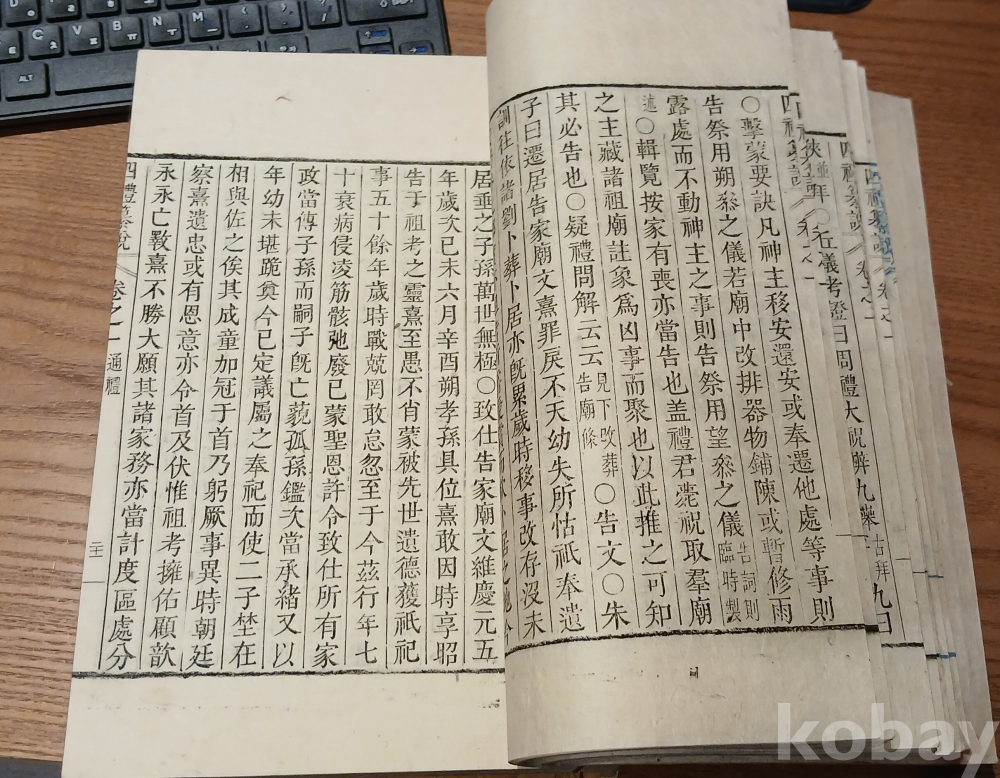 四禮纂說 卷之一
○擊蒙要訣凡神主移安還安或奉遷他處等事則
告祭用朔參之儀若廟中改排器物鋪陳或暫修雨
露處而不動神主之事則告祭用望參之儀 告詞則臨時製
述○輯覽按家有喪亦當告也盖禮君薨祝取羣廟
之主藏諸祖廟註象爲凶事而聚也以此推之可知
其必告也○疑禮問解云云 見下改葬告廟條 ○告文○朱
子曰遷居告家廟文熹罪戾不天幼失所怙祇奉遺
訓往依諸劉卜葬卜居亦旣累歲時移事改存沒未
居之地今
居垂之子孫萬世無極○致仕告家廟文維慶元五
年歲次己未六月辛酉朔孝孫具位熹敢因時享昭
告于祖考之靈熹至愚不肖蒙被先世遺德獲祇祀
事五十餘年歲時戰兢罔敢怠忽至于今玆行年七
十衰病侵凌筋骸弛廢已蒙聖恩許令致仕所有家
政當傳子孫而嗣子旣亡藐孤孫鑑次當承緖又以
年幼未堪跪奠今已定議屬之奉祀而使二子埜在
相與佐之俟其成童加冠于首乃躬厥事異時朝廷
察熹遺忠或有恩意亦令首及伏惟祖考擁佑顧歆
永永亡斁熹不勝大願其諸家務亦當計度區處分
四禮纂說 卷之一 通禮
俠 拜○丘儀考證曰周禮大祝辨九 古拜 九曰
kobay
ALT